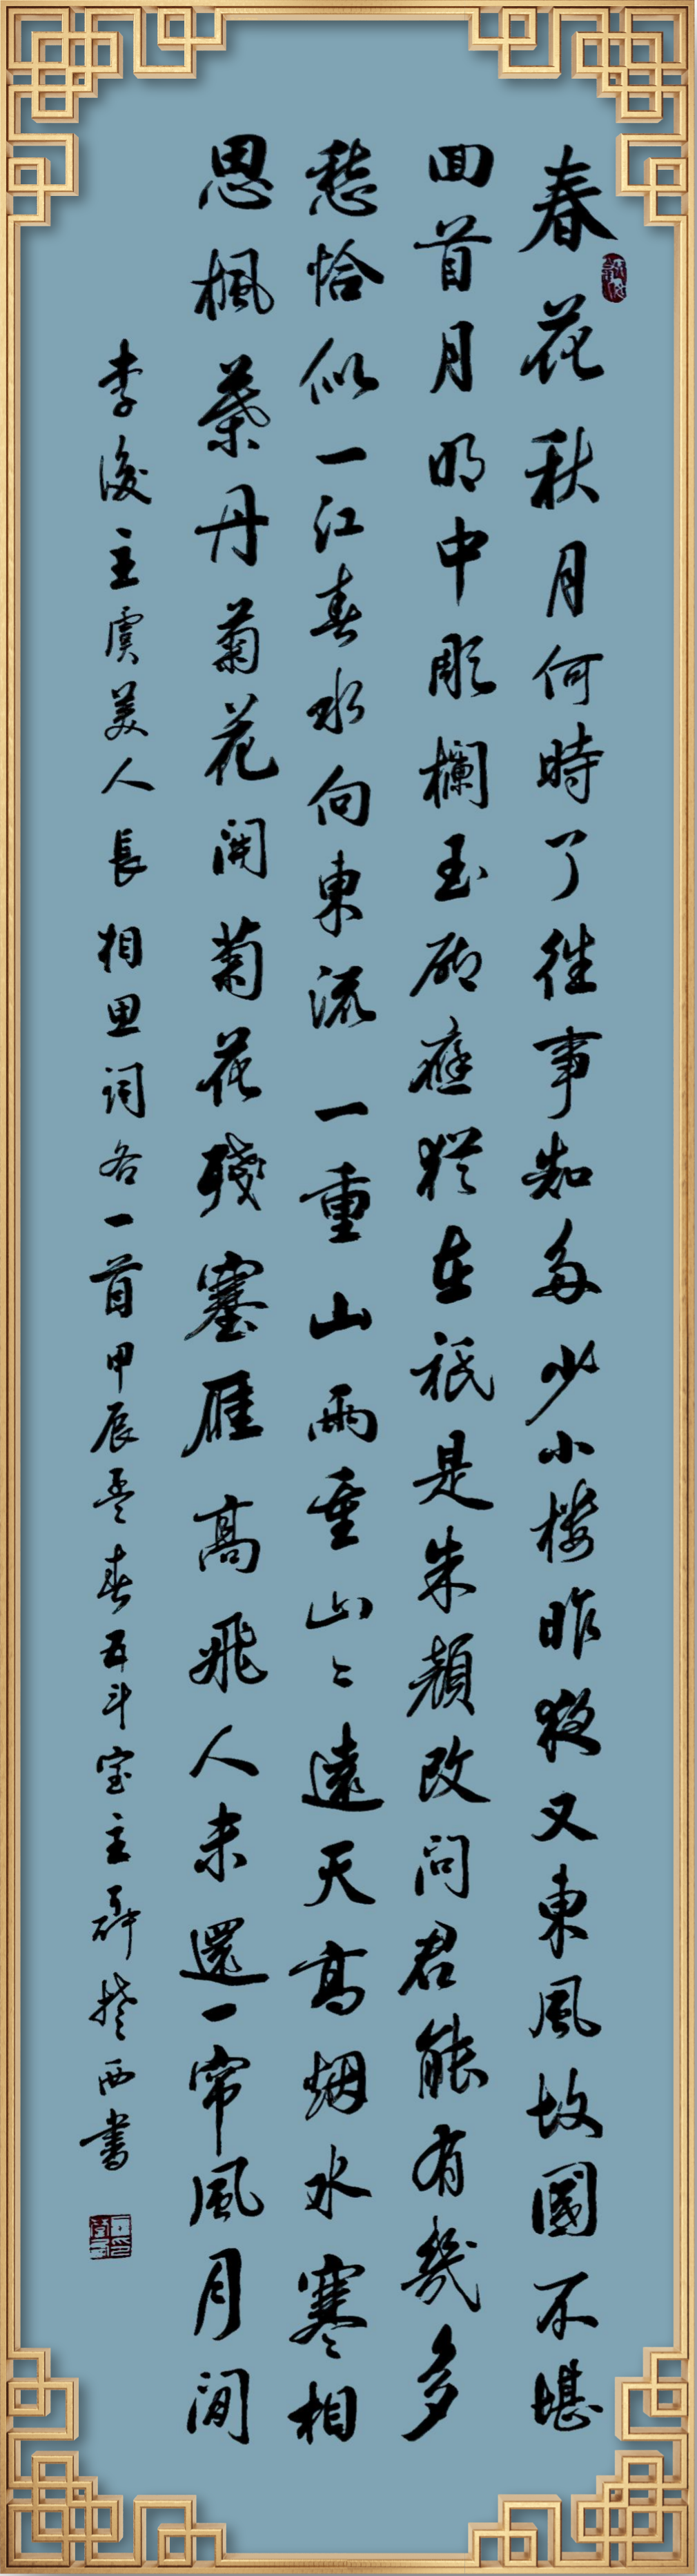 春花秋月何時了往事知多少小樓昨夜又東風故國不堪
回首月明中彫欄玉砌應猶在祇是朱顏改問君能有幾多
愁恰似一江春水向東流 一重山兩重山〻遠天高烟水寒相
思楓葉丹菊花開菊花殘塞雁高飛人未還一帘風月閒
李後主虞美人長相思詞各一首甲辰孟春五斗室主西書